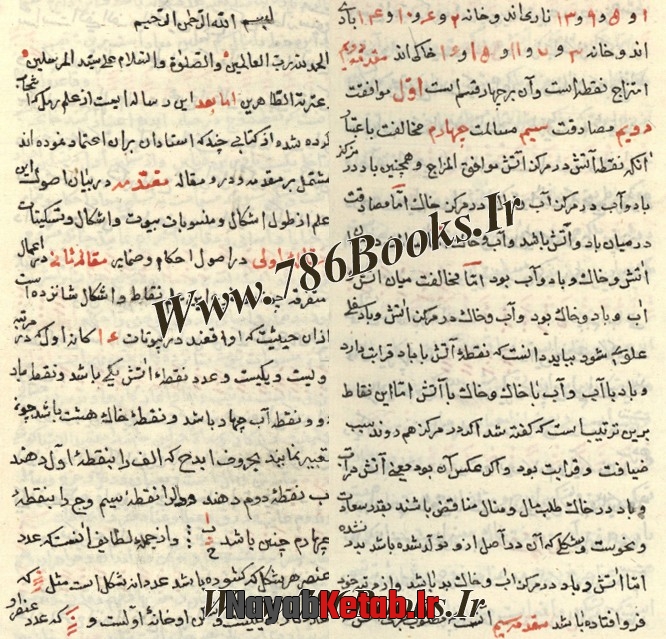 بسم الله الرحمن الرحیم
الحمد لله رب العالمین والصلوة والسلام علی سید المرسلین
عترته الطاهرین اما بعد این رساله ایست از علم رمل که
کرده شده از کتابی چند که استادان بران اعتماد نموده اند
مشتمل بر مقدمه و دو مقاله مقدمه در بیان اصول این
علم از طول اشکال و منسوبات بیوت و اشکال و تسکینات
اولی در اصول احکام و ضمایر مقاله ثانی در اعمال
متفرقه نقاط و اشکال شانزده است
ازان حیثیت که واقعند در بیوتات ۱۶ کانه اول که در مرتبه
ولیت و یکیست و عدد نقطهٔ اتش یکی باشد و نقطه باد
دو و نقطه آب چهار باشد و نقطهٔ خاک هشت باشد چونه
تعبیر نمایند بحروف ابدح که الف را بنقطهٔ اول دهند
ب نقطهٔ دوم دهند و دال را نقطهٔ سیم و ح را بنقطهٔ
چهارم چنین باشد و از جمله لطایف انست که عدد
عنصر هر شکل که کشوده باشد عدد ان شکل است مثل که
و ان خانهٔ اولست و که عدد عنصر و
۱ و ۵ و ۹ و ۱۳ ناری اند و خانه ۲ و ۶ و ۱۰ و ۱۴ بادی
اند و خانه ۳ و ۷ و ۱۱ و ۱۵ و ۱۶ خاکی اند مقدمه دویم
امتزاج نقطه است و آن بر چهار قسم است اول موافقت
دویم مصادقت سیم مسالمت چهارم مخالفت باعتبار
آنکه نقطه آتش در مرکز اتش موافق المزاج و همچنین باد در مرکز
باد و آب در مرکز آب و نقطه در مرکز خاک اما مصادقت
در میان باد و آتش باشد و آب و خاک
اتش و خاک و باد و آب بود اما مخالفت میان اتش
آب و باد و خاک بود و آب و خاک در مرکز اتش و باد سفلی
علوی شود بباید دانست که نقطهٔ آتش با باد قرابت دارد
و باد با آب و آب با خاک و خاک با آتش اما این نقاط
برین ترتیب است که کفته شد اکر در مرکز هم روند سبب
ضیافت و قرابت بود و اکر عکس آن بود یعنی آتش در آب
و باد در خاک طلب شال و منال مناقض باشند بقدر سعادت
و نحوست و شکلی که آن در اصل از و تولد شده باشد بد نشده
اما اتش و باد در مرکز آب و خاک بد نباشد و از مرتبه خود
فرو افتاده باشد مقدمه سیم
Www.786Books.Ir
Www.786Books.Ir
NayabKetab.Ir